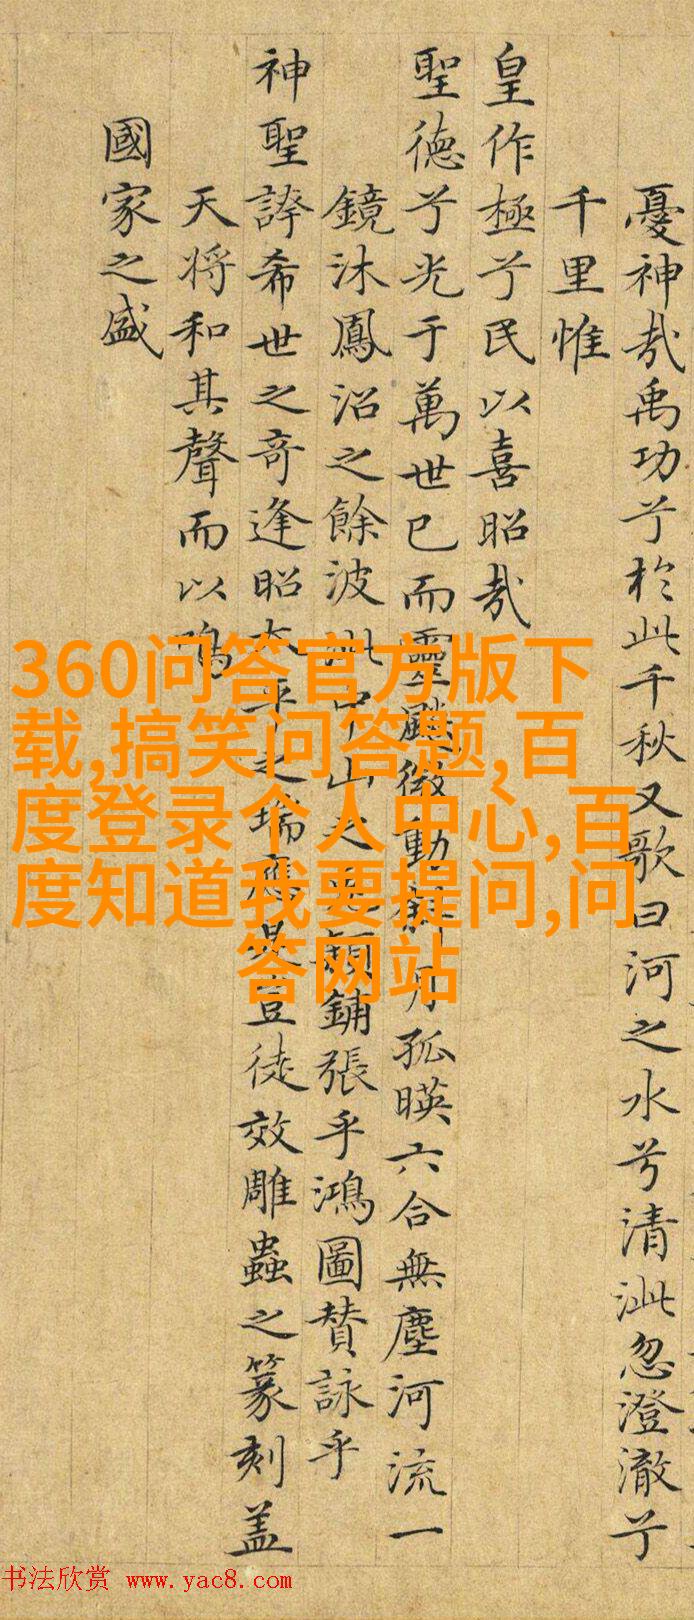 憂神哉禹功兮於此千秋又歌曰河之水兮清泚忽澄澈兮
千里惟
皇作極兮民以喜昭哉
聖德兮光于萬世已而靈飈微動月孤暎六合無塵河流一
鏡沐鳳沼之餘波中山之穎鋪張乎鴻圖贊詠乎
神聖誇希世之奇逢昭太平之瑞應是豈徒效雕蟲之篆刻盖
天将和其聲而以鳴
國家之盛
360问答官方版下
载,搞笑问答题,百
度登录个人中心,百
度知道我要提问,问
答网站
书法欣赏 www.yac8.com